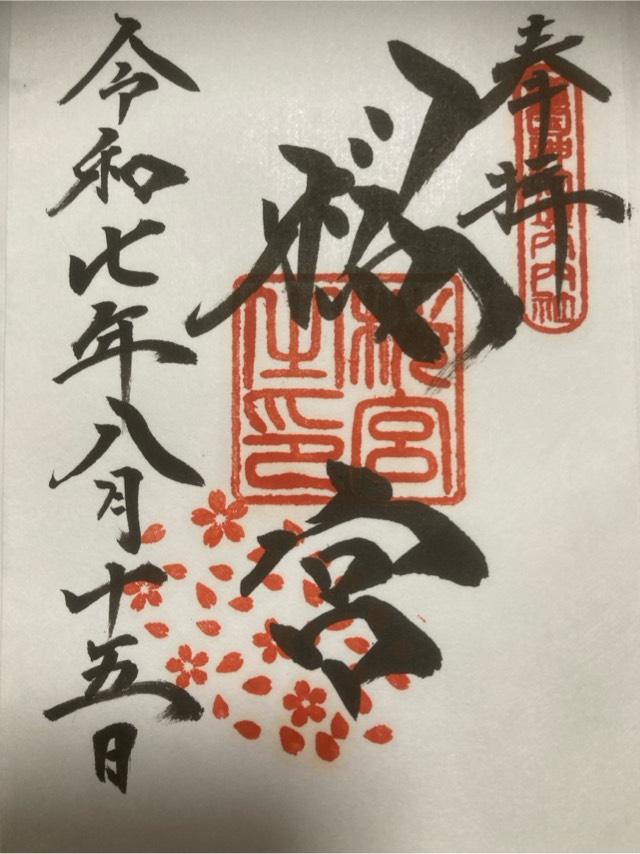 奉拝
桜宮
桜宮
令和七年八月十五日